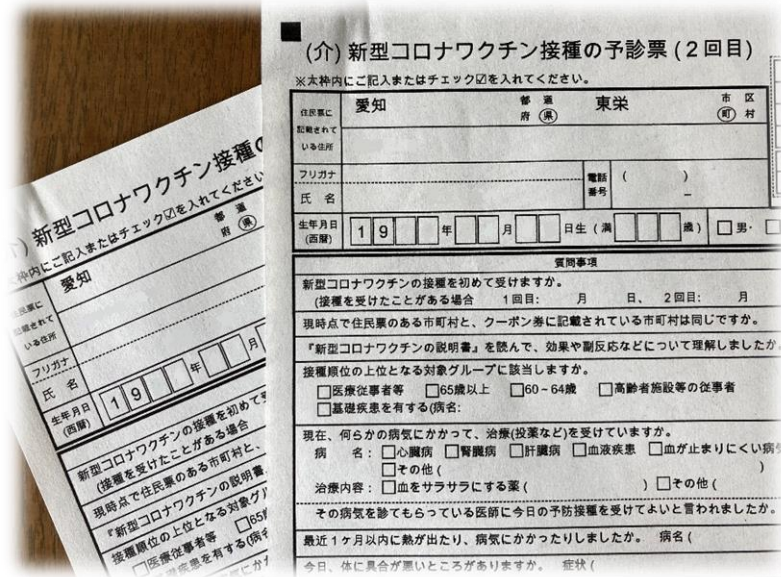 (介)新型コロナワクチン接種の予診票(2回目)
※太枠内にご記入またはチェック☑を入れてください。
住民票に
記載されて
いる住所
愛知
都 道
府 県
東栄
市 区
町 村
フリガナ
氏 名
電話
番号
( )
−
生年月日
(西暦)
19 年 月 日生(満 歳) □男・□
質問事項
新型コロナワクチンの接種を初めて受けますか。
(接種を受けたことがある場合 1回目: 月 日、 2回目: 月
現時点で住民票のある市町村と、クーポン券に記載されている市町村は同じですか。
『新型コロナワクチンの説明書』を読んで、効果や副反応などについて理解しましたか
接種順位の上位となる対象グループに該当しますか。
□医療従事者等 □65歳以上 □60~64歳 □高齢者施設等の従事者
□基礎疾患を有する(病名:
現在、何らかの病気にかかって、治療(投薬など)を受けていますか。
病 名:□心臓病 □腎臓病 □肝臓病 □血液疾患 □血が止まりにくい病気
□その他( )
治療内容:□血をサラサラにする薬( ) □その他(
その病気を診てもらっている医師に今日の予防接種を受けてよいと言われましたか。
最近1ヶ月以内に熱が出たり、病気にかかったりしましたか。 病名(
今日、体に具合が悪いところがありますか。 症状(
)新型コロナワクチン接種の
太枠内にご記入またはチェック☑を入れてください
住民票に
記載されて
いる住所
愛知
都 道
府 県
フリガナ
氏 名
生年月日
(西暦)
19 年 月
新型コロナワクチンの接種を初めて受
(接種を受けたことがある場合
現時点で住民票のある市町村と、
『新型コロナワクチンの説明書
接種順位の上位となる対象グル
□医療従事者等 □65
□基礎疾患を有する(病名